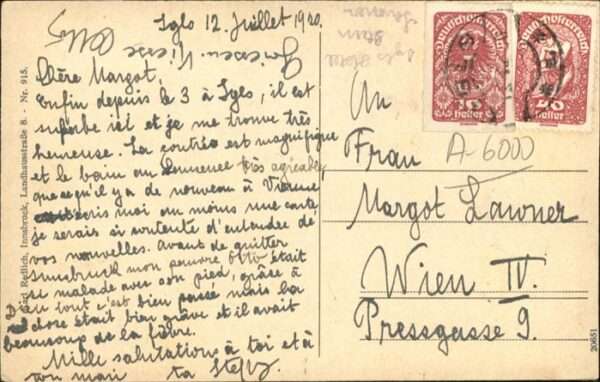 Igls 12. Juillet 1920.
Chère Margot,
Enfin depuis le 3 à Igls, il est
superbe ici et je me trouve très
heureuse. La contrée est magnifique
et le bain au très agréable,
que ce qu'il y a de nouveau à Vienne
écris moi au moins une carte
je serais si contente d'entendre de
vos nouvelles. Avant de quitter
Innsbruck mon pauvre Otto était
si malade avec son pied, grâse à
D tout c'est bien passé mais la
chose était bien grâve et il avait
beaucoup de la fièvre.
Mille salutations à toi et à
ton mari ta
Karl Redlich, Innsbruck, Landhausstraße 8. - Nr. 915.
Deutschösterreich
10
Heller
Deutschösterreich
40
Heller
A-6000
An
Frau
Margot Lawner
Wien IV.
Pressgasse 9.
20651